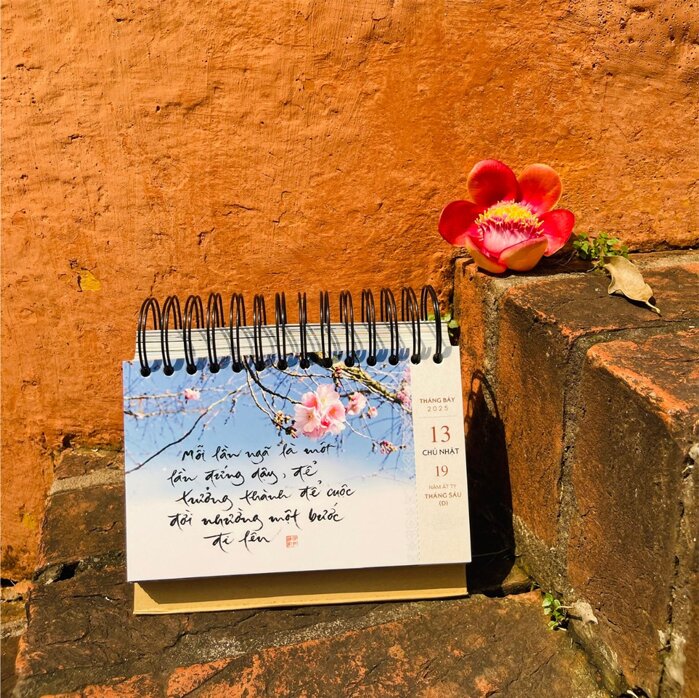 Mỗi lần ngã là một
lần đứng dậy, để
trưởng thành để cuộc
đời nhường một bước
đi lên
THÁNG BẢY
2025
13
CHỦ NHẬT
19
NĂM ẤT TỴ
THÁNG SÁU
(D)